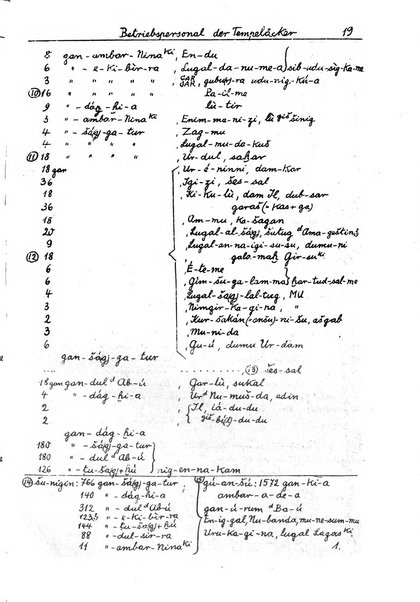 Betriebspersonal der Tempeläcker 19
8 gan-ambar-Nina ki, En-du
6 " -e-ki-bìr-ra, Lugal-da-nu-me-a } sib-udu-síg-ka-me
3 " " " " , GAR, gubuy-ra udu-nig-kú-a
⑩ 16 " " " " Pa-il-me
9 " -dág-hi-a lù-tir
3 " -ambar-Nina ki, Enim-ma-ni-zi, lú giš šinig
4 " -šágj-ga-tur, Zag-mu
6 " " " " , Lugal-mu-da-kuš
⑪ 18 " " " " , Ur-dul, sahar
18 gan , Ur-é-ninni, dam-kar
36 , Igi-zi, šeš-sal
18 , Ki-ku-lù, dam Il, dub-sar
36 garaš (=kas+ga)
18 , Am-mu, Ka-šagan
20 , Lugal-al-šágj, šutug d Ama-geštin
9 , Lugal-an-na-igi-su-su, dumu-ni
⑫ 18 gala-mah Gir-su ki
6 , É-te-me
6 , Gim-šu-ga-lam-ma } har-tud-sal-me
4 , Lugal-šágj-lal-tug, MU
3 , Nimgir-ka-gi-na, "
2 , Kur-šakán (=anšu)-ni-šu, ašgab
3 , Mu-ni-da
6 , Gu-ú, dumu Ur-dam
gan-šágj-ga-tur
⑬ šeš-sal
18 gan gan-dul d Ab-ú , Gar-lù, sukal
4 " -dág-hi-a , Ur d Nu-muš-da, edin
2 , Il, iá-du-du
2 , giš bi(l)-du-du
gan-dág-hi-a
180 " -šágj-ga-tur
180 " -dul d Ab-ú
126 " -tu-šágj+hú } nig-en-na-kam
⑭ šu-nigin: 766 gan-šágj-ga-tur
140 " -dág-hi-a
312 " -dul d Ab-ú
123,5 " -e-ki-bìr-ra
144 " -tu-šágj+hú
88 " -dul-sír-ra
11 " -ambar-Nina ki
⑮ gú-an-šú: 1572 gan-ki-a
ambar-a-de-a
gan-ú-rum d Ba-ú
En-ig-gal, Nu-banda, mu-ne-sum-mu
Uru-ka-gi-na, lugal Lagaš ki
1.